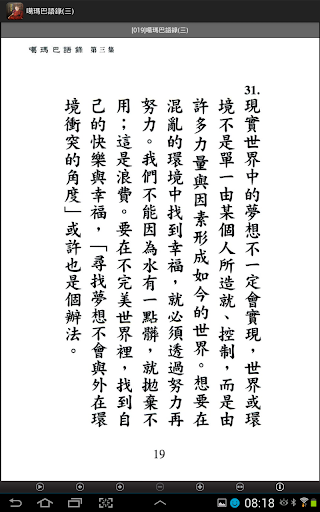 噶瑪巴語錄(三)
[019]噶瑪巴語錄(三)
噶瑪巴語錄 第三集
31.
現實世界中的夢想不一定會實現，世界或環
境不是單一由某個人所造就、控制，而是由
許多力量與因素形成如今的世界。想要在
混亂的環境中找到幸福，就必須透過努力再
努力。我們不能因為水有一點髒，就拋棄不
用；這是浪費。要在不完美世界裡，找到自
己的快樂與幸福，「尋找夢想不會與外在環
境衝突的角度」或許也是個辦法。
19
08:18